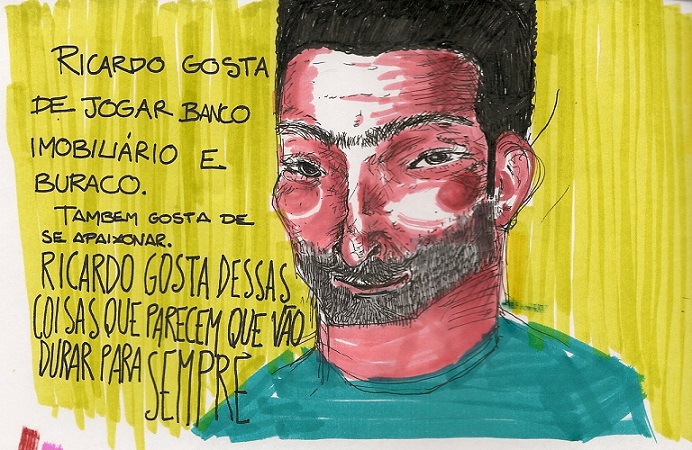 RICARDO GOSTA
DE JOGAR BANCO
IMOBILIÁRIO E
BURACO.
TAMBEM GOSTA DE
SE APAIXONAR.
RICARDO GOSTA DESSAS
COISAS QUE PARECEM QUE VÃO
DURAR PARA SEMPRE